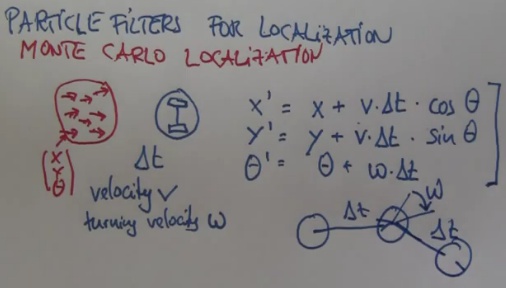 PARTICLE FILTERS FOR LOCALIZATION
MONTE CARLO LOCALIZATION
X
Y
θ
Δt
velocity v
turning velocity ω
X' = X + v·Δt · cos θ
Y' = Y + v·Δt · sin θ
θ' = θ + ω·Δt
Δt
ω
Δt